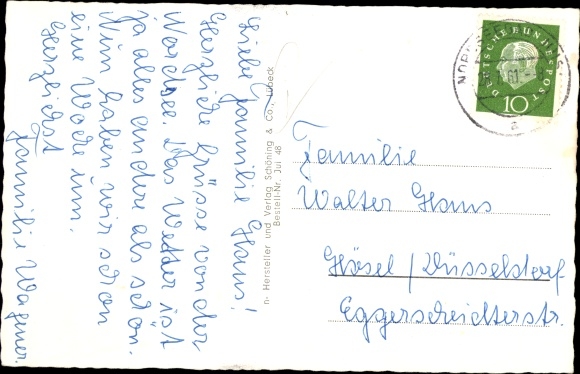 Liebe Familie Hans!
Herzliche Grüsse von der
Nordsee. Das Wetter ist
ja alles andere als schön.
Nun haben wir schon
eine Woche um.
Herzlichst
Familie Wagener.
n- Hersteller und Verlag Schöning & Co., Lübeck
Bestell-Nr. Jui 48
DEUTSCHE BUNDESPOST
10
Familie
Walter Hans
Hösel / Düsseldorf
Eggerscheidterstr.